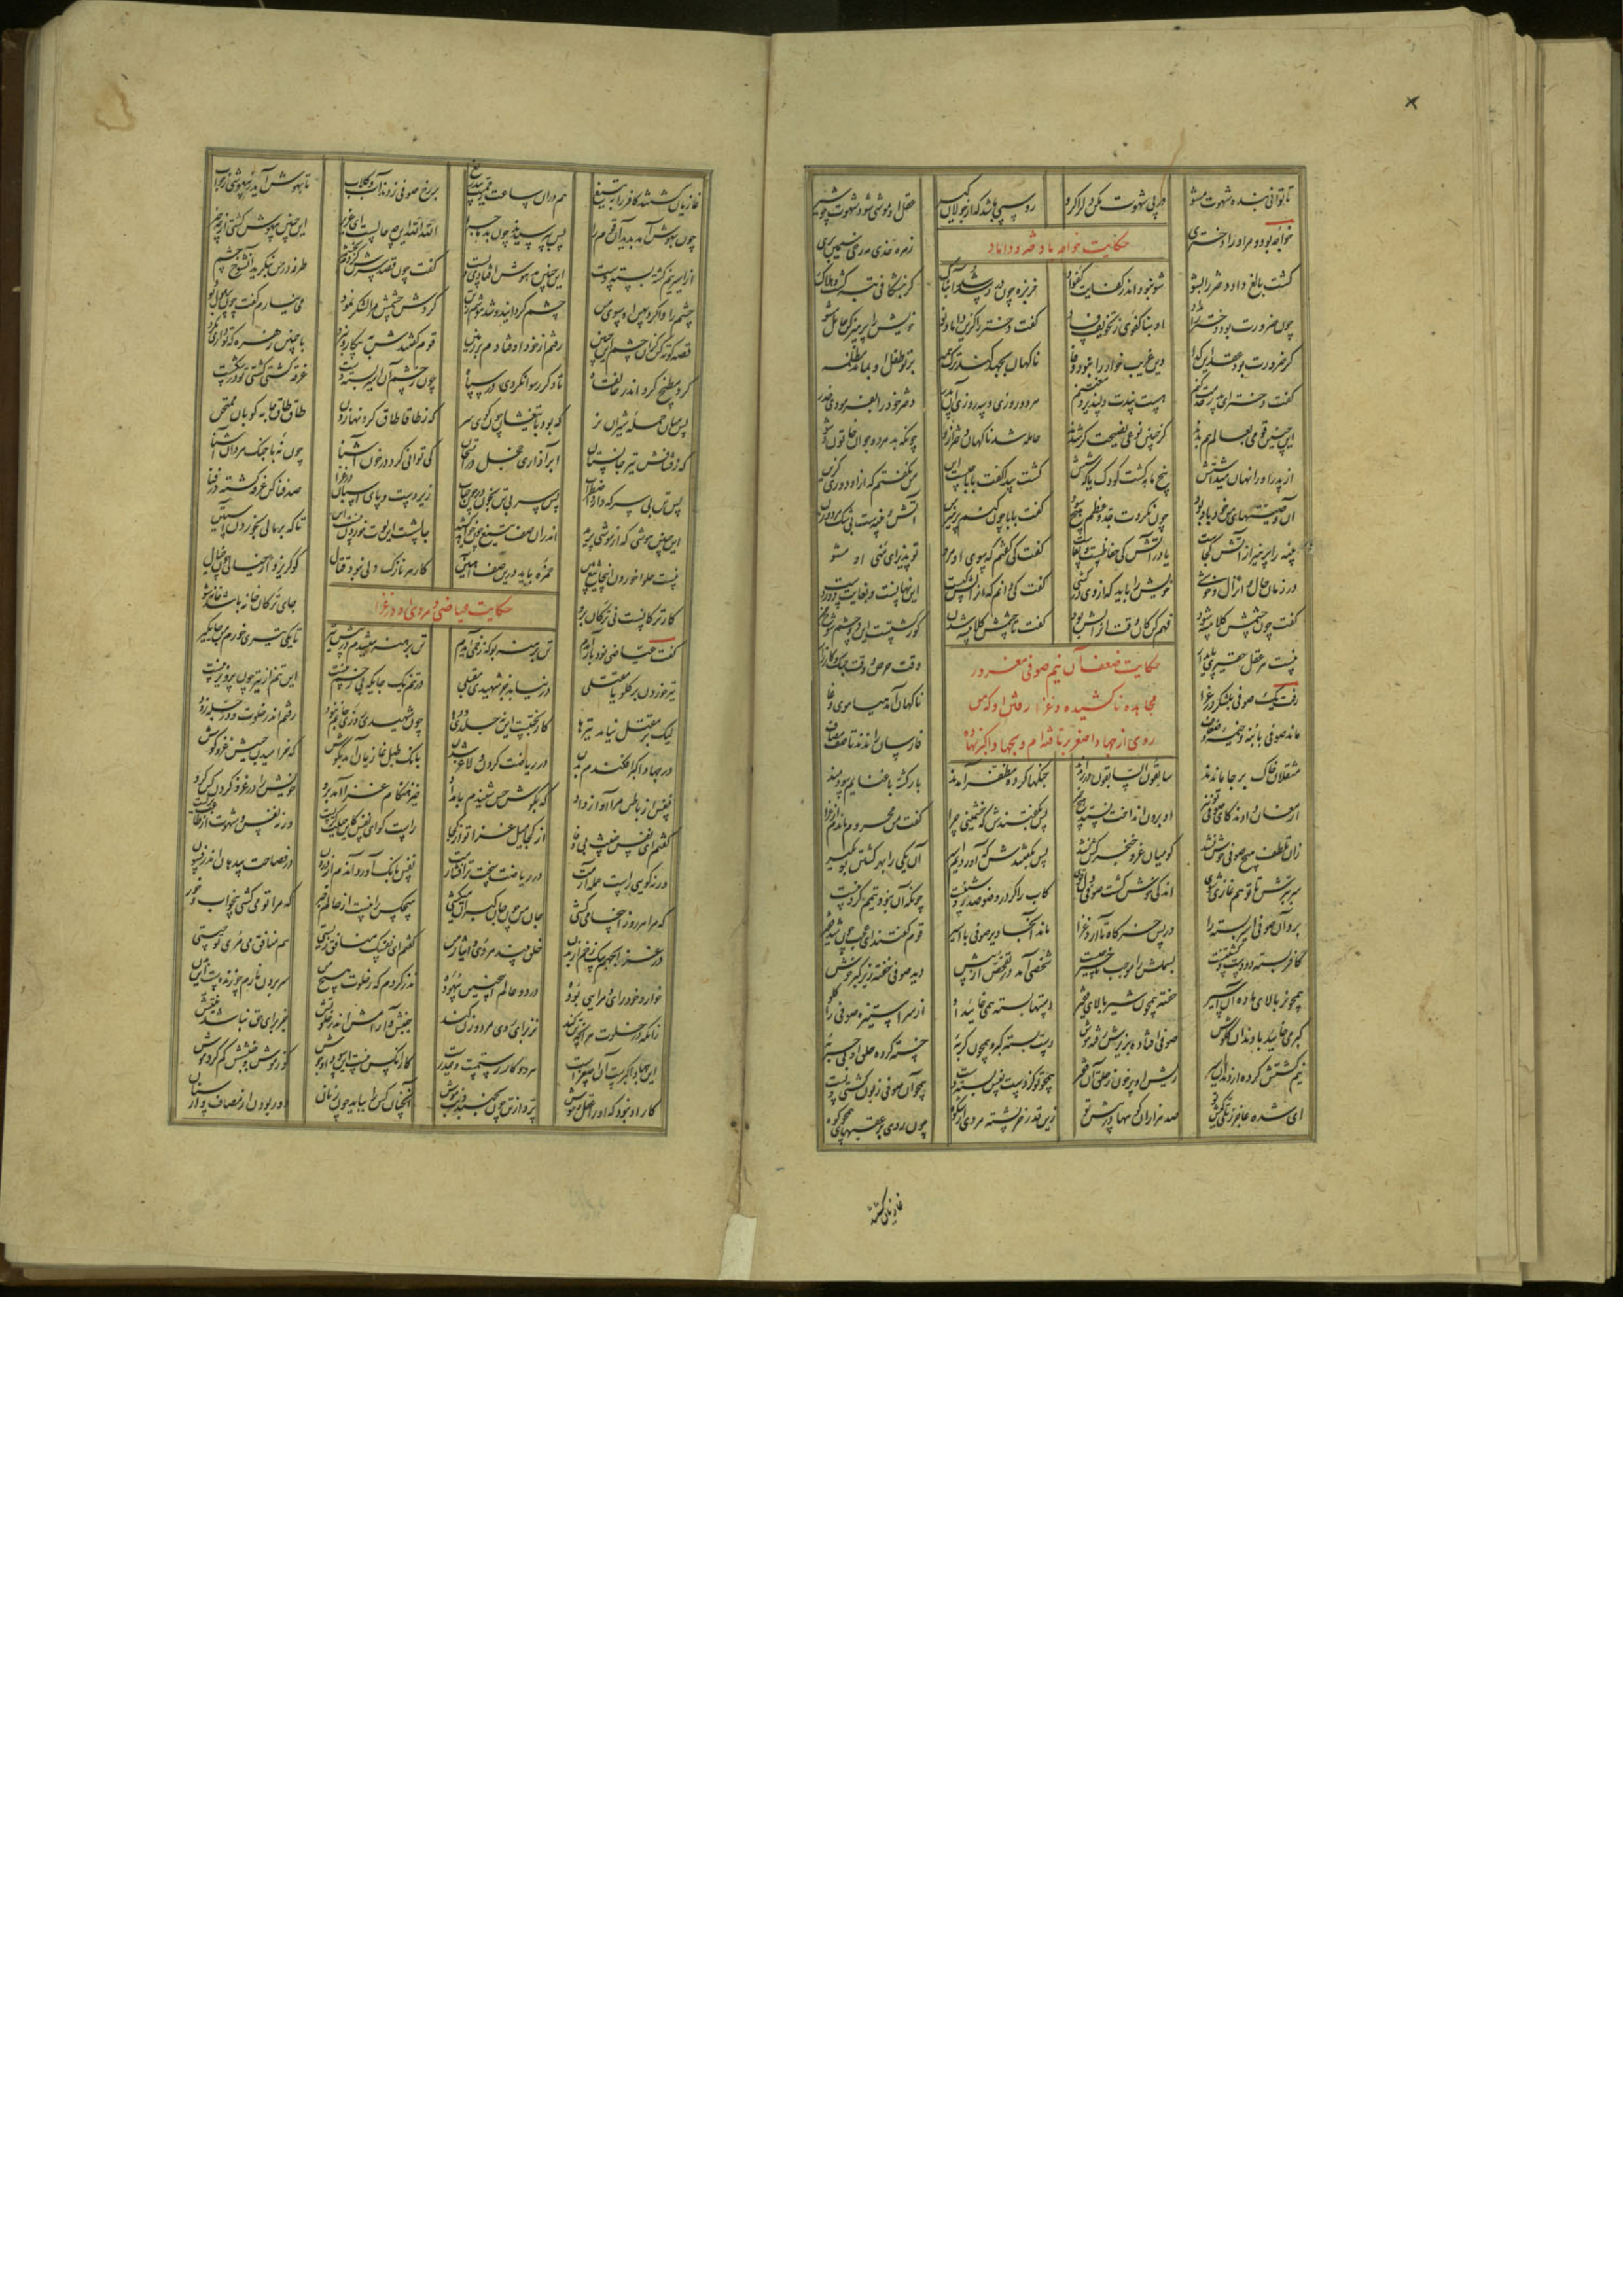 تا توانی بنده شهوت مشو در پی شهوت مکن دل را گرو روسپی باشد که از جولان کیر عقل او موشی شود شهوت چو شیر
حکایت خواجه با دختر و داماد
خواجه بود و مر او را دختری زهره خدی مه رخی سیمین بری
گشت بالغ داد دختر را بشو شو نبود اندر کفایت کفو او خربزه چون در رسد شد آبناک گر بنشکافی تبه گشت و هلاک
چون ضرورت بود دختر را بداد او بناکفوی ز تخویف فساد گفت دختر را کزین داماد نو خویش را پرهیز کن حامل مشو
کز ضرورت بود عقد این گدا این غریب خوار را نبود وفا ناگهان بجهد کند ترک همه بر تو طفل او بماند مظلمه
گفت دختر ای پدر خدمت کنم هست پندت دلپذیر و مغتنم هر دو روزی هر سه روزی آن پدر دختر خود را بفرمودی حذر
این چنین قومی بعالم هم بدند کز چنین نوعی نصیحت گر شدند حامله شد ناگهان دختر ازو چونکه بد مرد و جوان خاتون و شو
از پدر او را نهان میداشتش پنج ماهه گشت کودک یا که شش گشت پیدا گفت بابا چیست این من نگفتم که ازو دوری گزین
آن وصیتهای من خود باد بود چون نکردت پند و وعظم هیچ سود گفت بابا چون کنم پرهیز من آتش و پنبه ست بی شک مرد و زن
پنبه را پرهیز از آتش کجاست یا در آتش کی حفاظست و تقاست گفت کی گفتم که سوی او مرو تو پذیرای منی او مشو
در زمان حال و انزال و خوشی خویش را باید که از وی در کشی گفت کی دانم که انزالش کیست این نهانست و بغایت دور دست
گفت چون چشمش کلاپیسه شود فهم کن کان وقت انزالش بود گفت تا چشمش کلاپیسه شدن کور گشتست این دو چشم کور من
نیست هر عقل حقیر پایدار وقت حرص و وقت جنگ و کارزار
حکایت ضعف آن نیم صوفی مغرور
مجاهده ناکشیده و غزا رفتن او که من
روی از جهاد اصغر برتافته ام و بجهاد اکبر نهاده
رفت یک صوفی بلشکر در غزا ناگهان آمد هیاهوی وغا
ماند صوفی با بنه و خیمه و ضعاف فارسان راندند تا صف مصاف
مثقلان خاک بر جا ماندند سابقون السابقون در راندند جنگها کرده مظفر آمدند باز گشته با غنایم سودمند
ارمغان دادند کای صوفی تو نیز او برون انداخت نستد هیچ چیز پس بگفتندش که خشمینی چرا گفت من محروم ماندم از غزا
زان تلطف هیچ صوفی خوش نشد کو میان غزو خنجر کش نشد پس بگفتندش که آوردیم اسیر آن یکی را بهر کشتن تو بگیر
سر ببرش تا تو هم غازی شوی اندکی خوش گشت صوفی دل قوی کاب را گر در وضو صد روشنیست چونکه آن نبود تیمم کردنیست
برد آن صوفی اسیر بسته را در پس خرگاه تا آرد غزا ماند آنجا دیر صوفی با اسیر قوم گفتند ای عجب چون شد فقیر
کافر بسته دو دست کشتنیست بسملش را موجب تاخیر چیست شخصی آمد در تفحص از پیش دید صوفی خفته زیر گبر خوش
همچو نر بالای ماده آن اسیر خفته همچون شیر بالای فقیر دستها بسته همی خایید او از سر استیزه صوفی را گلو
گبر می خایید با دندان گلوش صوفی افتاده بزیرش رفته هوش دست بسته گبر و همچون گربه خسته کرده حلق او بی حربه
نیم کشتش کرده از دندان اسیر ریش او پر خون ز حلق آن فقیر همچو تو کز دست نفس بسته دست همچو آن صوفی زبون گشتی و پست
ای شده عاجز ز تلی کیش تو صد هزاران کوهها در پیش تو زین قدر خرپشته مردی از شکوه چون روی بر عقبهای همچو کوه
غازیان کشتند
غازیان کشتند کافر را بتیغ هم در آن ساعت ز حمیت بیدریغ بر رخ صوفی زدند آب و گلاب تا بهوش آید ز بیهوشی و خواب
چون بهوش آمد بدید آن قوم را پس بپرسیدند چون بد ماجرا الله الله این چه حالست ای عزیز این چنین بیهوش گشتی از چه چیز
از اسیر نیم کشته بسته دست این چنین بیهوش افتادی و پست گفت چون قصد سرش کردم بخشم طرفه در من بنگرید آن شوخ چشم
چشم را وا کرد پهن او سوی من چشم گردانید و شد هوشم ز تن گردش چشمش مرا لشکر نمود می نیارم گفت چون پر هول بود
قصه کوته کن کزان چشم این چنین رفتم از خود اوفتادم بر زمین
قوم گفتندش به پیکار و نبرد با چنین زهره که تو داری مگرد
گرد مطبخ گرد اندر خانقاه تا نگردی رسوا در سپاه
چون ز چشم آن اسیر بسته دست غرقه گشتی کشتی تو در شکست
پس میان حمله شیران نر که بود با تیغشان چون گوی سر
که ز طاقا طاق گردنها زدن طاق طاق جامه کوبان ممتهن
کی توانی کرد در خون آشنا چون نه با جنگ مردان آشنا
بس تن بی سر که دارد اضطراب بس سر بی تن بخون در چون حباب
زیر دست و پای اسبان در غزا صد فنا کن غرق گشته در فنا
این چنین هوشی که از موشی پرید اندر آن صف تیغ چون خواهد کشید
چالش است این نیست خوردن تا که بر مالی بخوردن آستین
نیست حلوا خوردن اینجا تیغ بین حمزه باید درین صف آهنین
کار هر نازک دلی نبود قتال کو گریزد از خیالی چون خیال
کار ترکانست نی ترکان برو جای ترکان خانه باشد خانه شو
حکایت عیاضی و مردی او در غزا
گفت عیاضی نود بار آمدم تن برهنه بو که زخمی آیدم تن برهنه میشدم در پیش تیر تا یکی تیری خورم من جایگیر
تیر خوردن بر گلو یا مقتلی در نیابد جز شهیدی مقبلی در تنم یک جایگه بی زخم نیست این تنم از تیر چون پرویزنیست
لیک بر مقتل نیامد تیرها کار بختست این نه جلدی و دها چون شهیدی روزی جانم نبود رفتم اندر خلوت و در چله زود
در جهاد اکبر افکندم بدن در ریاضت کردن و لاغر شدن بانک طبل غازیان آمد بگوش که خرامیدند جیش غزو کوش
نفس از باطن مرا آواز داد که بگوش حس شنیدم بامداد خیز هنگام غزا آمد برو خویش را در غزو کردن کن گرو
گفتم ای نفس خبیث بی وفا از کجا میل غزا تو از کجا راست گوی ای نفس کاین حیلت گریست ورنه نفس و شهوت از طاعت بریست
ورنه گویی راست حمله آرمت در ریاضت سخت تر افشارمت نفس بانگ آورد آن دم از درون با فصاحت بی دهان اندر فسون
که مرا هر روز اینجا می کشی جان من چون جان گبران می کشی هیچکس را نیست از حالم خبر که مرا تو می کشی بیخواب و خور
در غزا بجهم بیک زخم از بدن خلق بیند مردی و ایثار من گفتم ای نفسک منافق زیستی هم منافق می مری تو چیستی
خوار و خودرای و مرایی بوده در دو عالم اینچنین بیهوده نذر کردم که ز خلوت هیچ من سر برون نارم چو زنده ست این بدن
زانکه در خلوت هر آنچه تن کند نز برای روی مرد و زن کند جنبش و آرامش اندر خلوتش جز برای حق نباشد نیتش
این جهاد اکبرست آن اصغرست هر دو کار رستمست و حیدرست کار آنکس نیست کو را عقل و هوش
کار او نبود که او را عقل و هوش پرد از تن چون بجنبد دنب موش آنچنان کس را بباید چون زنان دور بودن از مصاف و از سنان